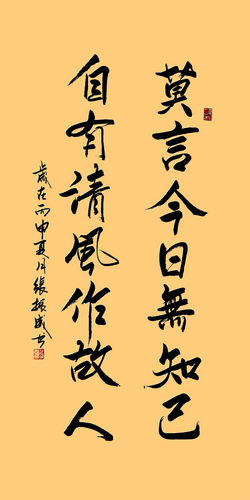 莫言今日無知己
自有清風作故人
歲在丙申夏月張振成書